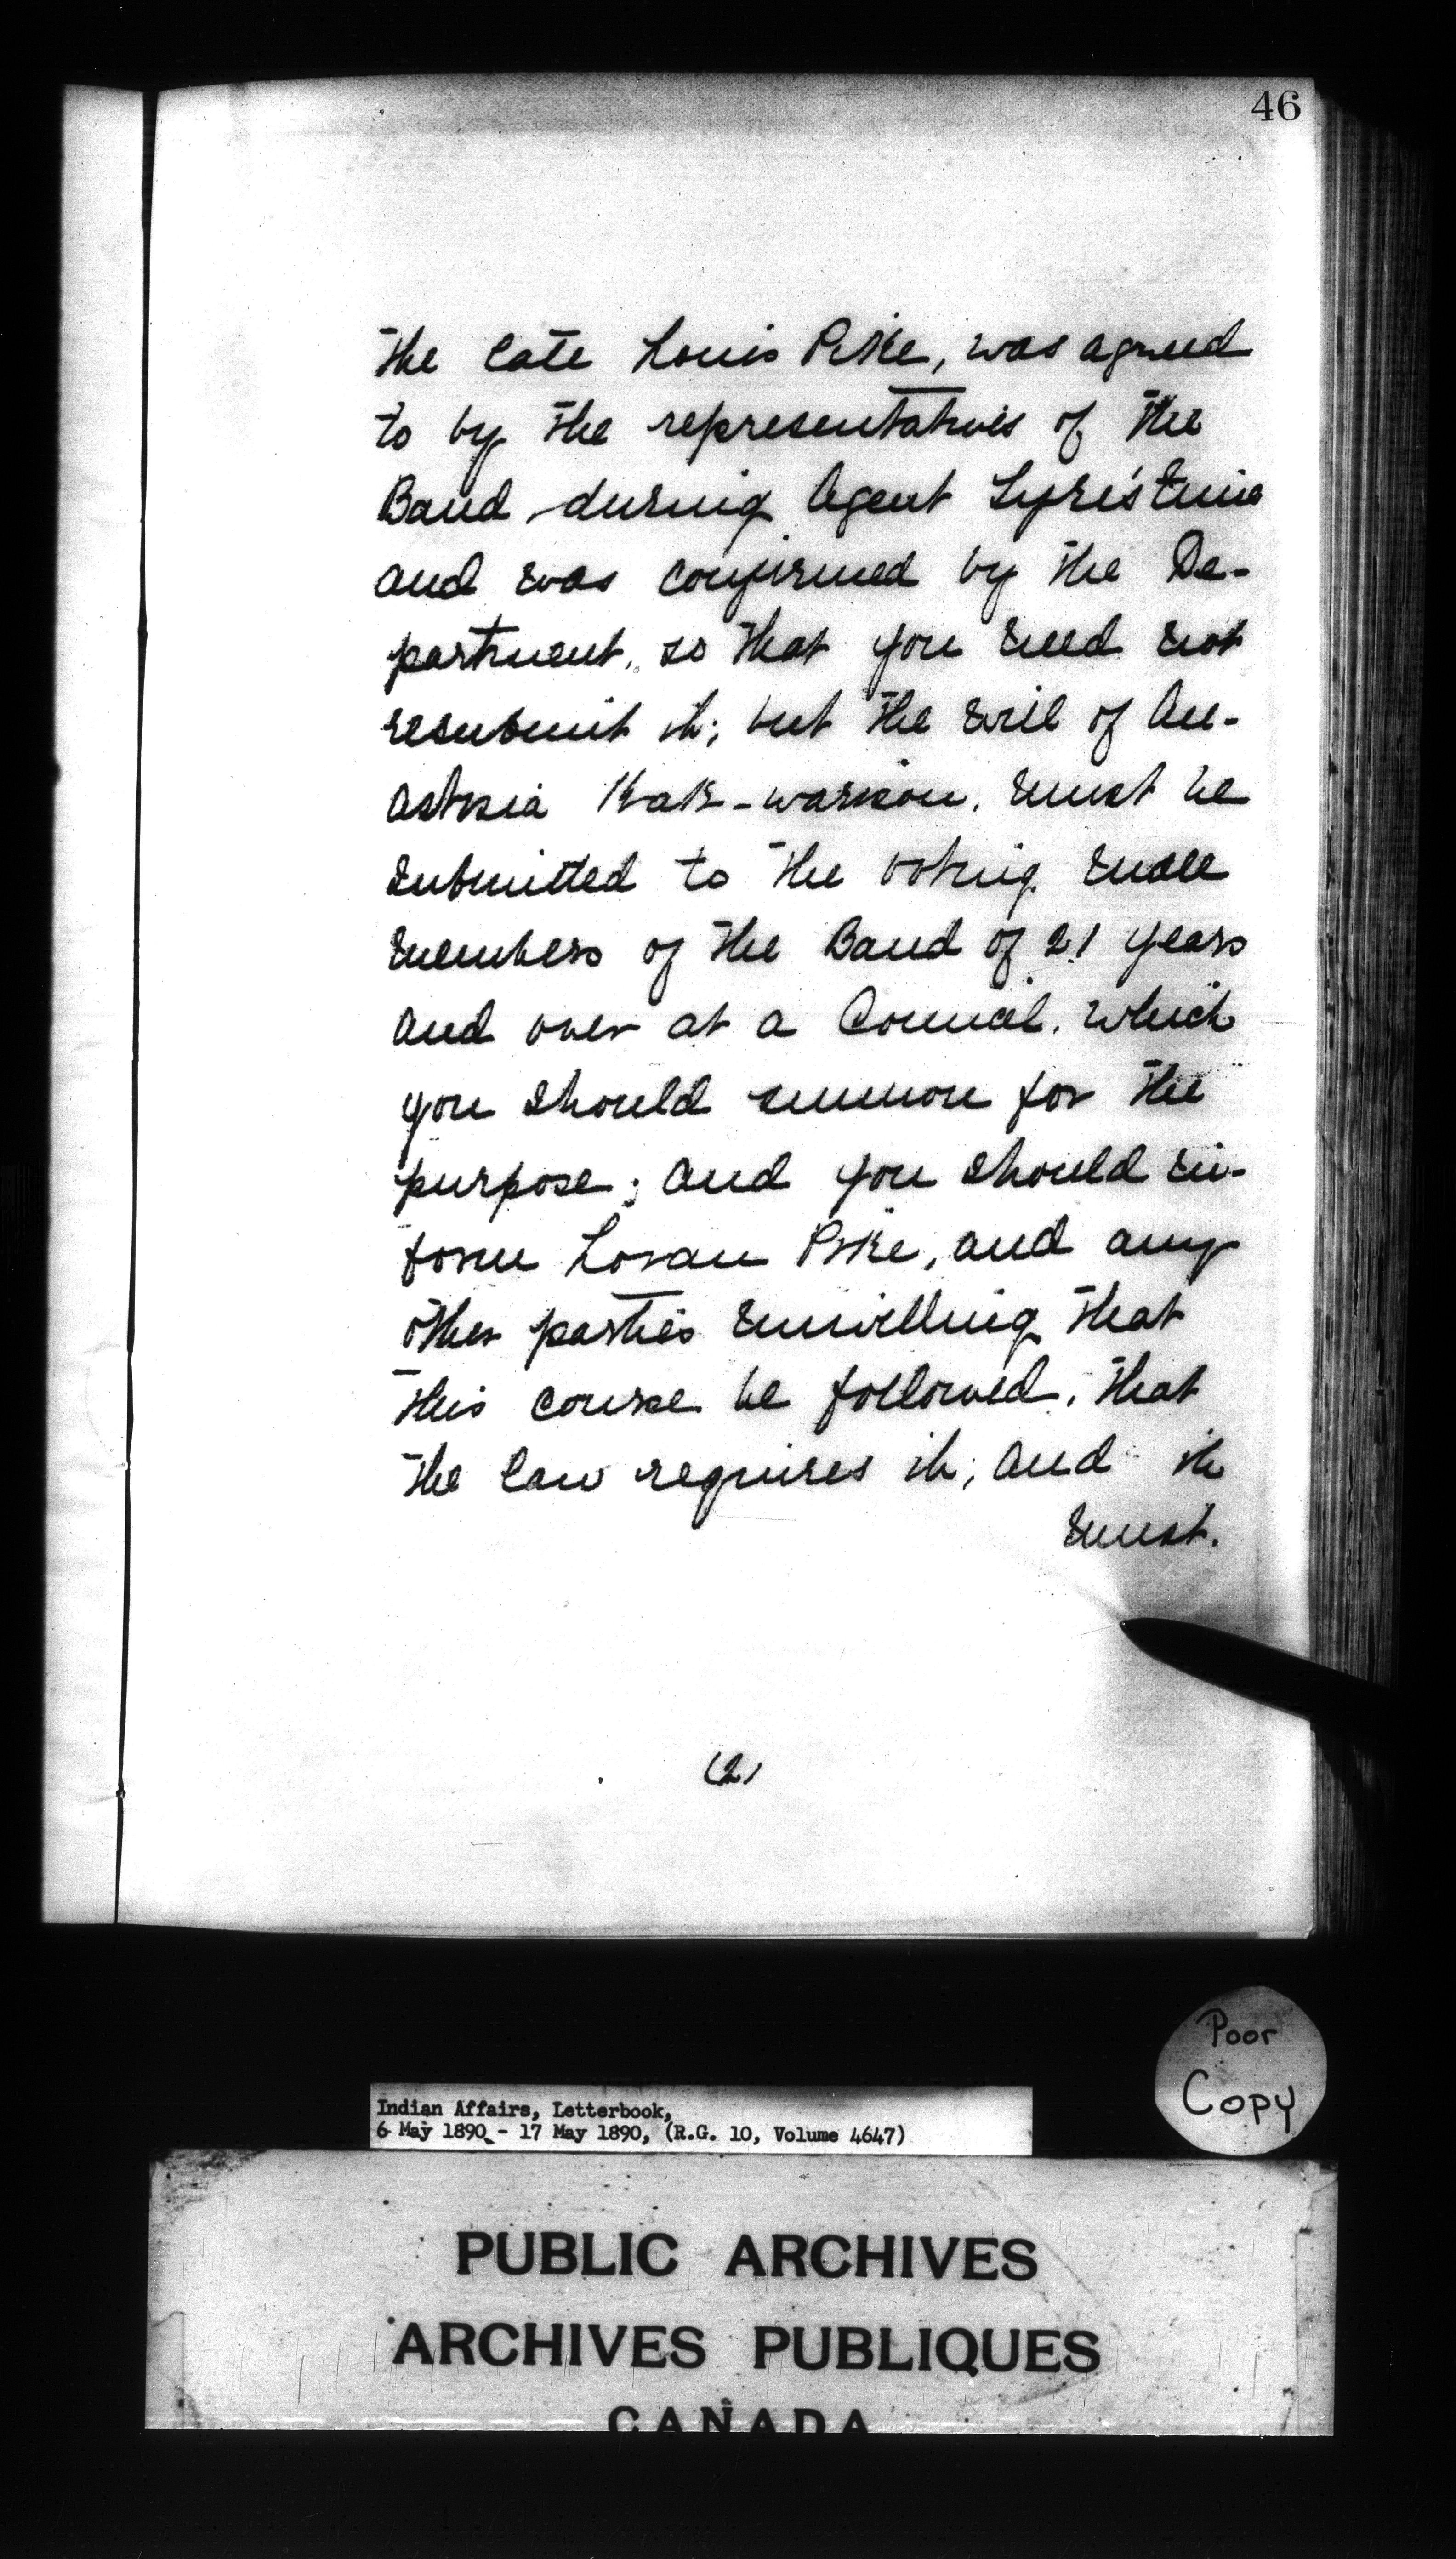 46
the late Louis Pike, was agreed
to by the representatives of the
Band during Agent Tyre's time
and was confirmed by the De-
partment, so that you need not
resubmit it; but the will of An-
astasia must be
submitted to the voting male
members of the Band of 21 years
and over at a Council, which
you should summon for the
purpose; and you should in-
form Loran Pike, and any
other parties unwilling that
this course be followed, that
the law requires it; and it
must.
(2)
Poor
Copy
Indian Affairs, Letterbook,
6 May 1890 - 17 May 1890, (R.G. 10, Volume 4647)
PUBLIC ARCHIVES
ARCHIVES PUBLIQUES
CANADA